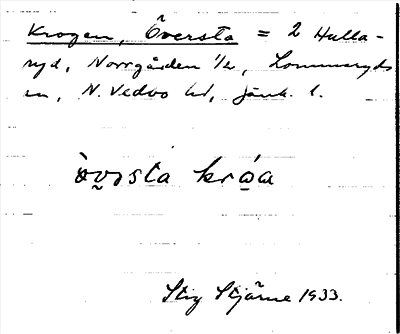 Krogen, Översta = 2 Hulla-
ryd, Norrgården 1/2, Lommaryds
sn, N. Vedbo hd, Jönk. l.
òvɹsta kròa
Stig Stjärne 1933.